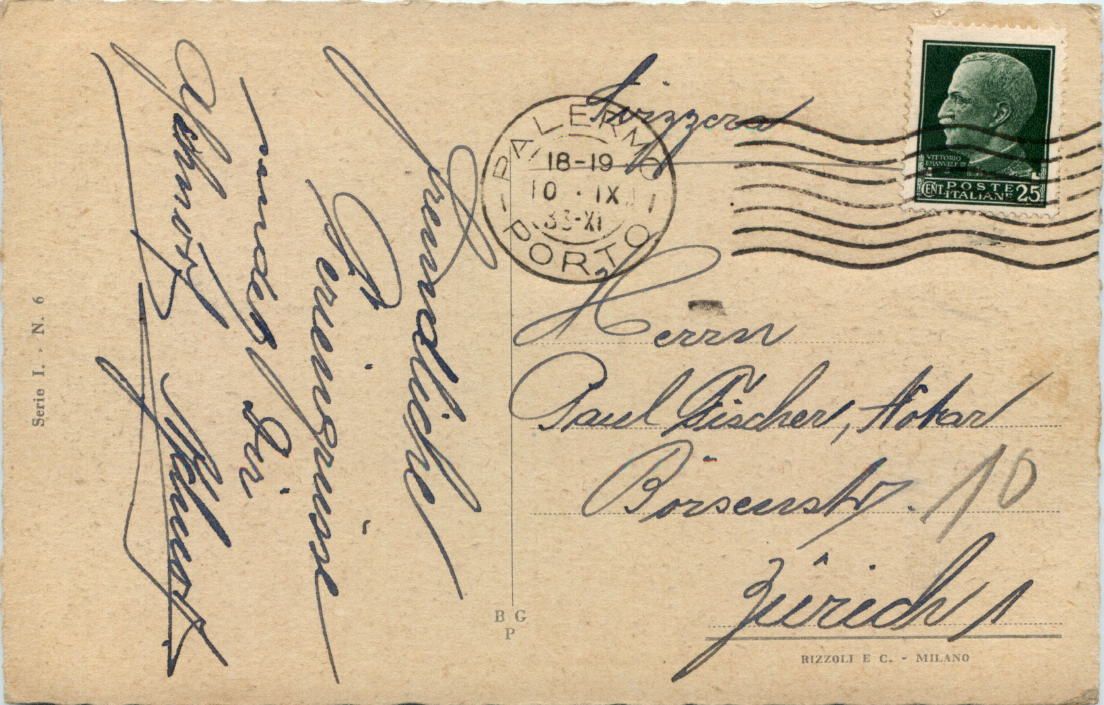 Freundliche
Feriengrüsse
sendet Dir
Svizzera
PALERMO
18-19
10·IX
33-XI
PORTO
VITTORIO
EMANUELE
POSTE
ITALIANE
CENT. 25
Herrn
Paul Fischer, Notar
Börsenstr. 10
Zürich 1
Serie I. - N. 6
B G
P
RIZZOLI E C. - MILANO